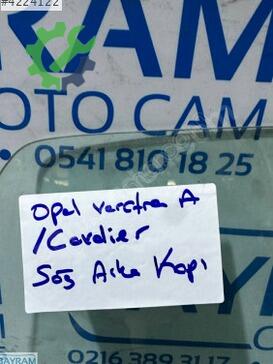 #4224122
RAM
OTO CAM
0541 810 18 25
Opel vectra A
/Cavalier
Sağ Arka Kapı
BAYRAM
0216 389 31 17